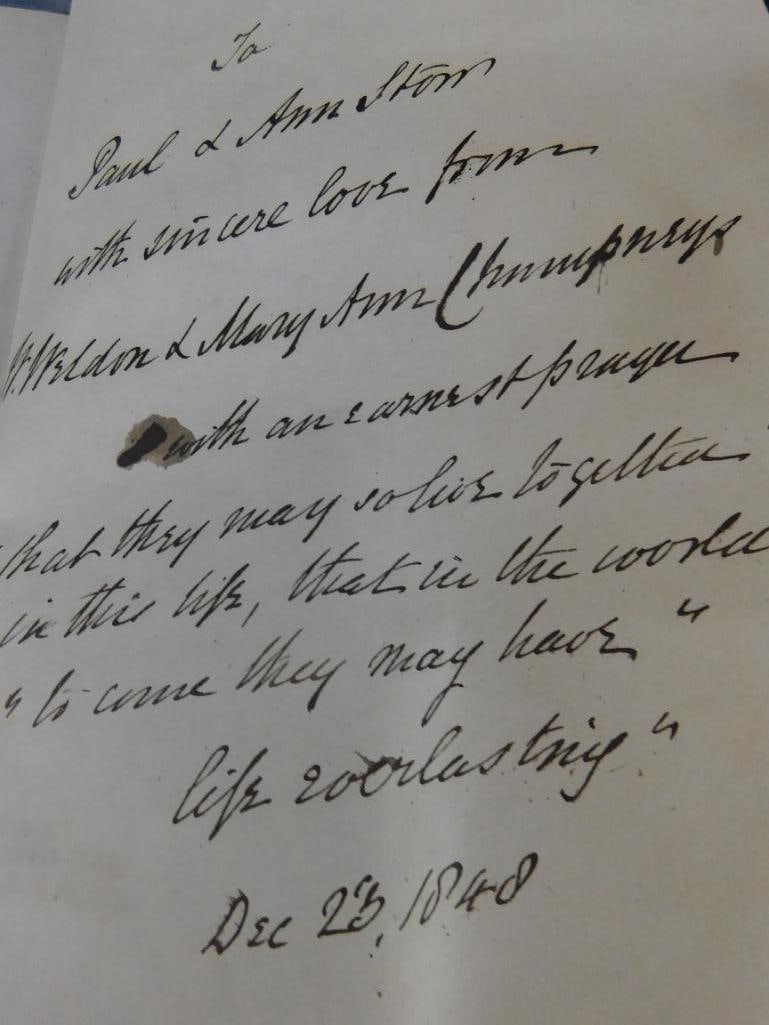 To
Paul & Ann Storr
with sincere love from
W. Weldon & Mary Ann Chumpneys
with an earnest prayer
that they may so live together
in this life, that in the world
" to come they may have "
life everlasting "
Dec 23, 1848